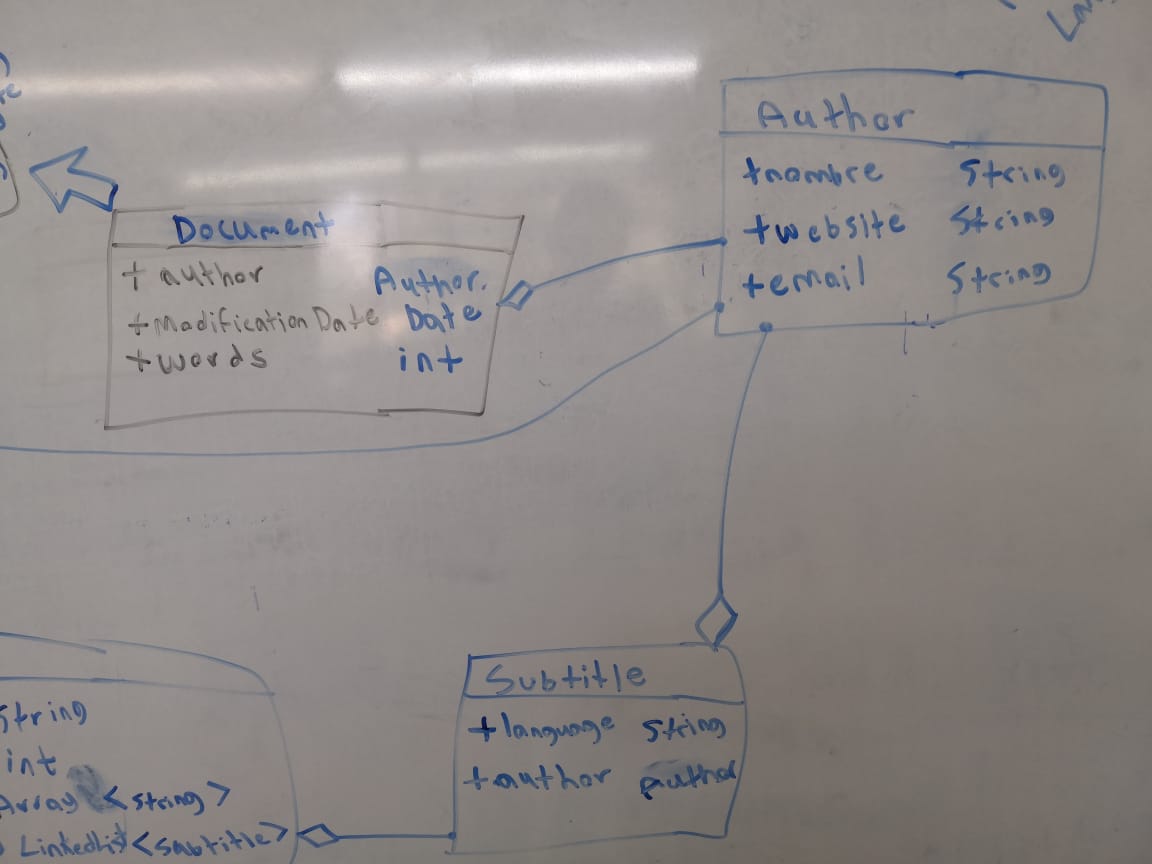 Author
+nombre String
+website String
+email String
Document
+author Author.
+ModificationDate Date
+words int
Subtitle
+language String
+author author
String
int
Array <string>
LinkedList<subtitle>